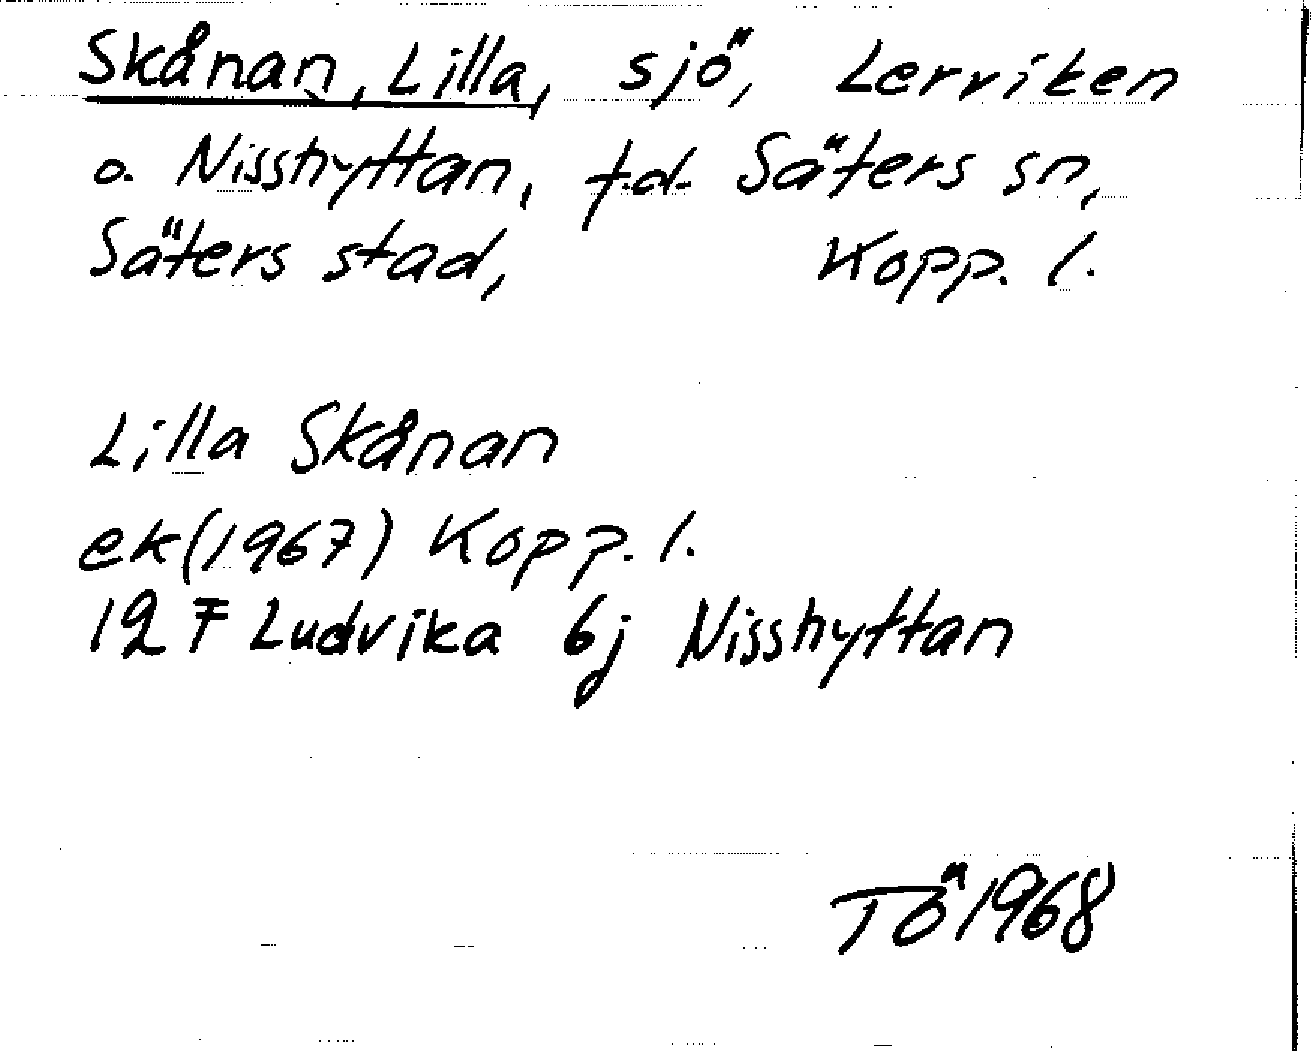 Skånan, Lilla, sjö, Lerviken
o. Nisshyttan, f.d. Säters sn,
Säters stad, Kopp. l.
Lilla Skånan
ek(1967) Kopp. l.
12 F Ludvika 6j Nisshyttan
TÖ 1968